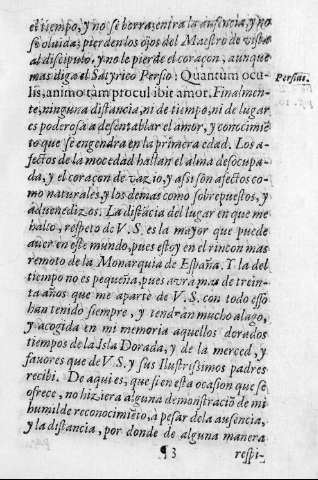 el tiempo, y no se borra; entra la ausencia, y no
se oluida; pierden los ojos del Maestro de vista
al discipulo, y no le pierde el coraçon, aunque
mas diga el Satyrico Persio: Quantum ocu-
Persius.
lis, animo tam procul ibit amor. Finalmen-
te, ninguna distancia, ni de tiempo, ni de lugar
es poderosa a desentablar el amor, y conocimiẽ
to que se engendra en la primera edad. Los a-
fectos de la mocedad hallan el alma desocupa-
da, y el coraçon de vazio, y assi son afectos co-
mo naturales, y los demas como sobrepuestos, y
aduenedizos. La distãcia del lugar en que me
hallo, respeto de V.S. es la mayor que puede
auer en este mundo, pues estoy en el rincon mas
remoto de la Monarquia de España. Y la del
tiempo no es pequeña, pues avrà mas de trein-
ta años que me aparte de V.S. con todo esso
han tenido siempre, y tendràn mucho alago,
y acogida en mi memoria aquellos dorados
tiempos de la Isla Dorada, y de la merced, y
fauores que de V.S. y sus Ilustrissimos padres
recibi. De aqui es, que si en esta ocasion que se
ofrece, no hiziera alguna demonstraciõ de mi
humilde reconocimiẽto, a pesar de la ausencia,
y la distancia, por donde de alguna manera
¶ 3
respi-